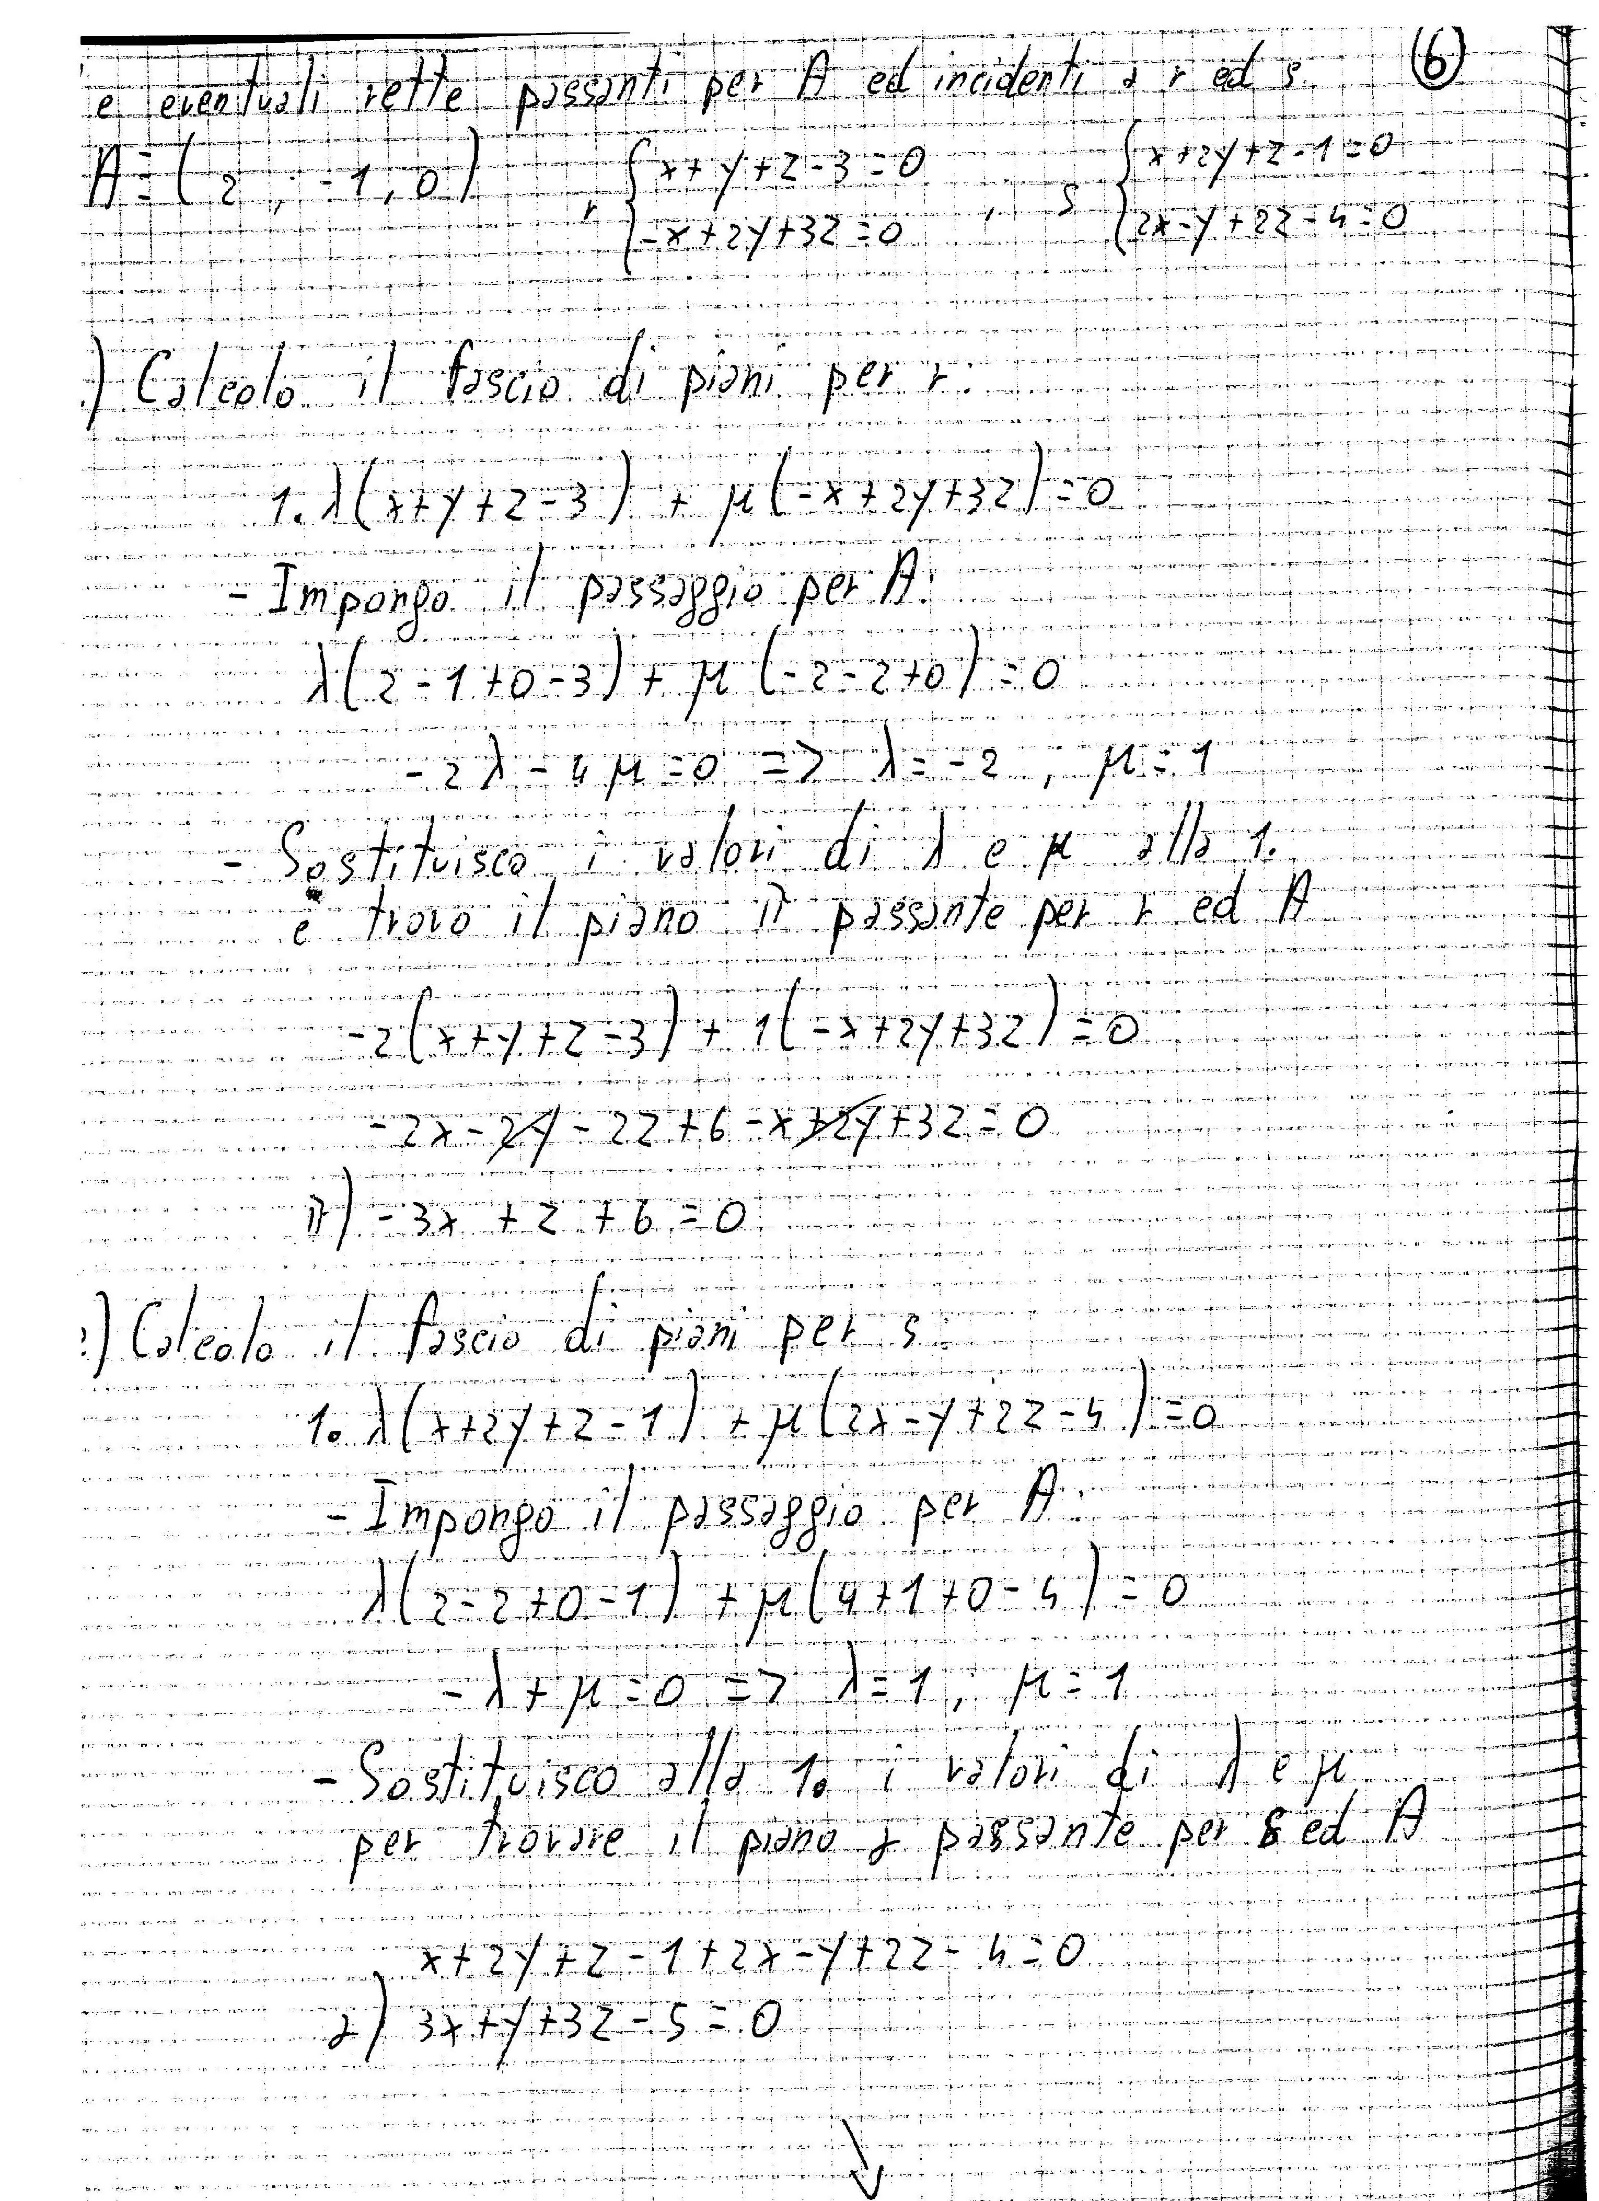 e eventuali rette passanti per A ed incidenti a r ed s. 6
A ≡ (2, -1, 0) r { x+y+z-3=0 , s { x+2y+z-1=0
-x+2y+3z=0 2x-y+2z-4=0
) Calcolo il fascio di piani per r:
1. λ(x+y+z-3) + μ(-x+2y+3z)=0
- Impongo il passaggio per A:
λ(2-1+0-3) + μ(-2-2+0)=0
-2λ-4μ=0 => λ=-2, μ=1
- Sostituisco i valori di λ e μ alla 1.
e trovo il piano π passante per r ed A
-2(x+y+z-3) + 1(-x+2y+3z)=0
-2x-2y-2z+6-x+2y+3z=0
π) -3x+z+6=0
) Calcolo il fascio di piani per s:
1. λ(x+2y+z-1) + μ(2x-y+2z-4)=0
- Impongo il passaggio per A:
λ(2-2+0-1) + μ(4+1+0-4)=0
-λ+μ=0 => λ=1, μ=1
- Sostituisco alla 1. i valori di λ e μ
per trovare il piano α passante per s ed A
x+2y+z-1+2x-y+2z-4=0
α) 3x+y+3z-5=0